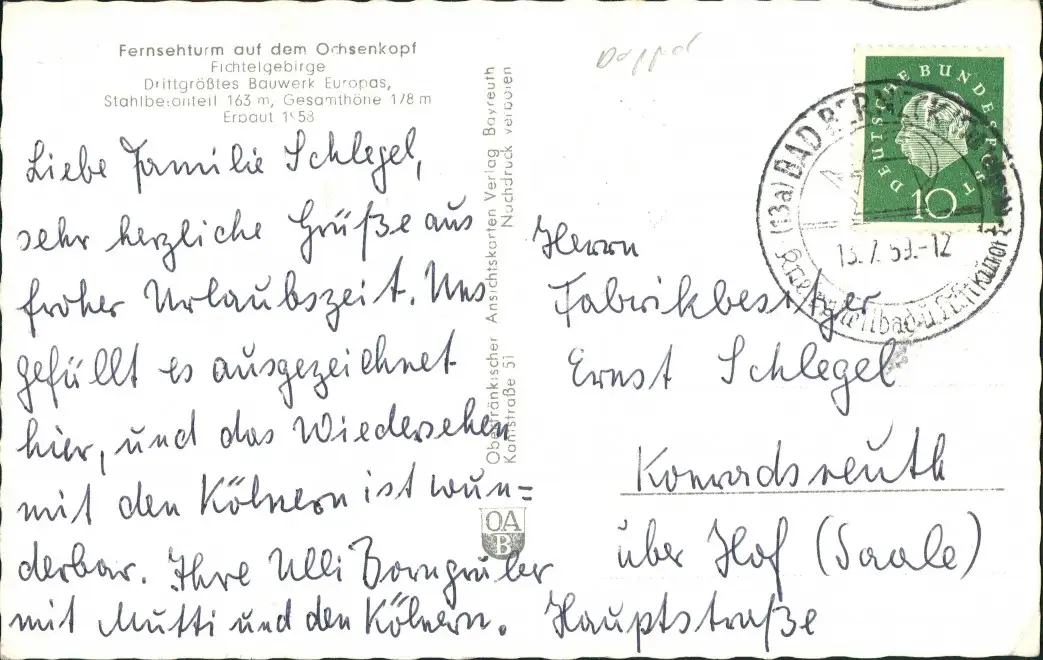 Fernsehturm auf dem Ochsenkopf
Fichtelgebirge
Drittgrößtes Bauwerk Europas,
Stahlbetonteil 163 m, Gesamthöhe 178 m
Erbaut 1958
Liebe Familie Schlegel,
sehr herzliche Grüße aus
froher Urlaubszeit. Uns
gefüllt es ausgezeichnet
hier, und das Wiedersehen
mit den Kölnern ist wun=
derbar. Ihre Ulli Borngruber
mit Mutti und den Kölnern.
Oberfränkischer Ansichtskarten Verlag Bayreuth
Kanlstraße 51 Nachdruck verboten
OA
B
DEUTSCHE BUNDESPOST
10
(13a) BAD BERNECK
13.7.59.-12
Herrn
Fabrikbesitzer
Ernst Schlegel
Konradsreuth
über Hof (Saale)
Hauptstraße